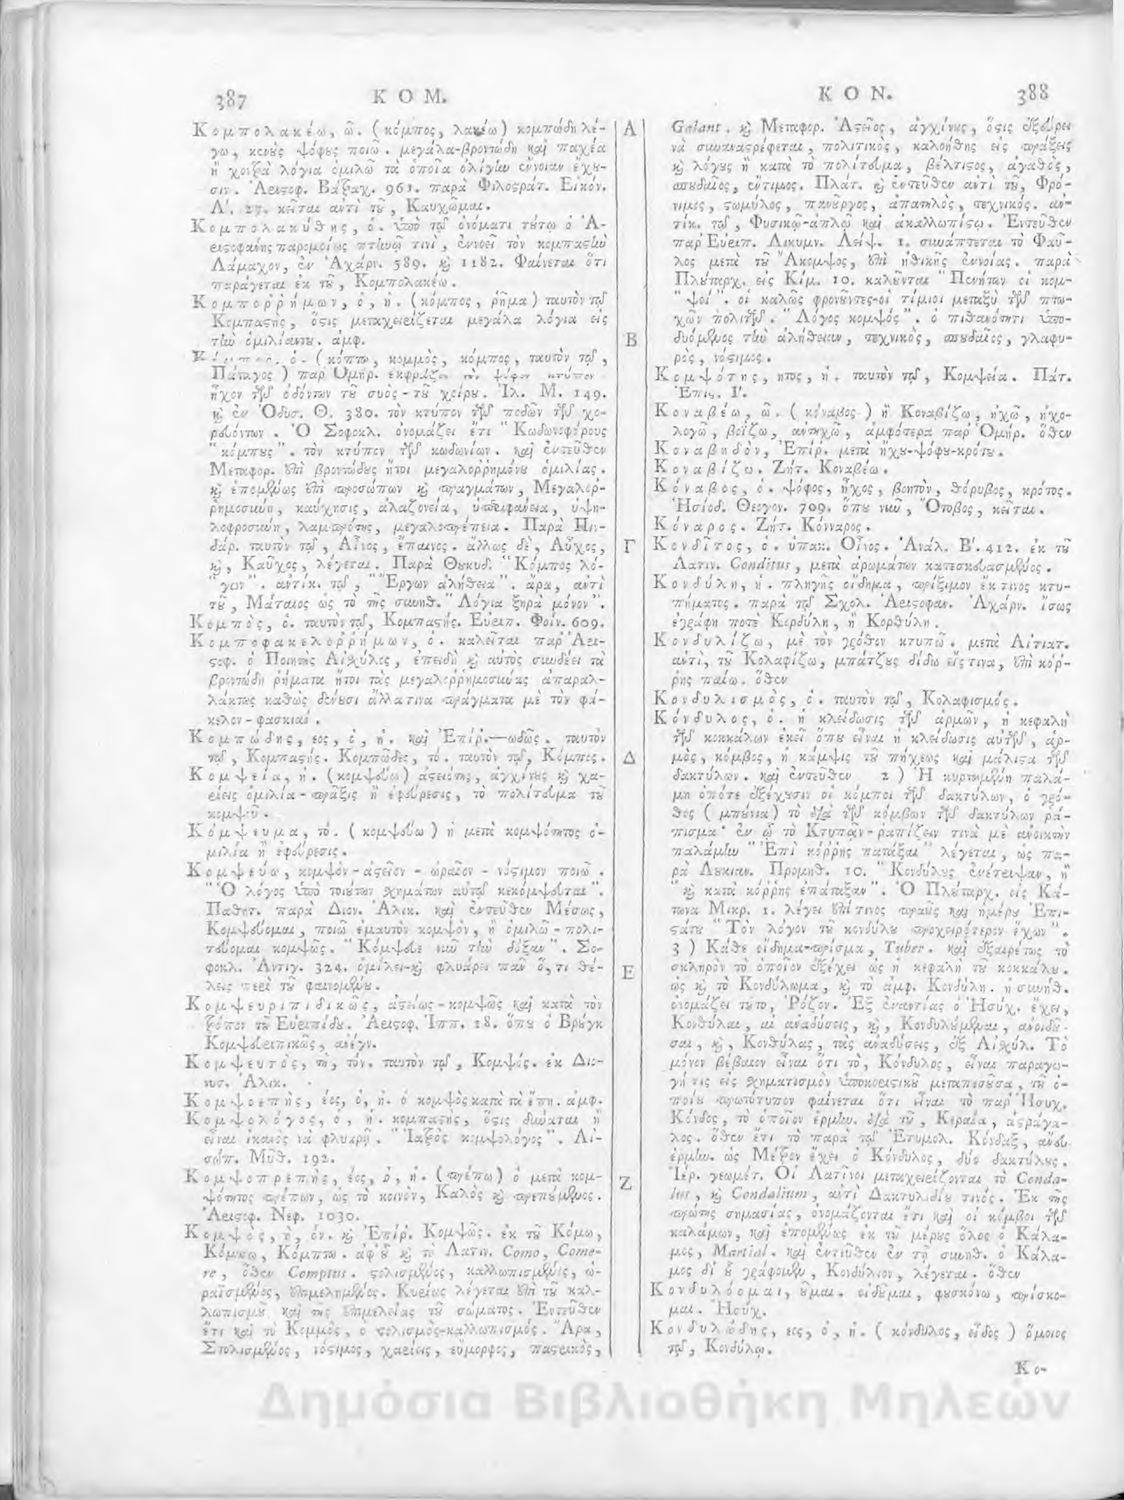 387 ΚΟΜ.
Κομπολακέω, ῶ. (κόμπος, λακέω) κομπώδη λέ-
γω, κενοὺς ψόφους ποιῶ. μεγάλα-βροντώδη καὶ παχέα
ἢ χονδρὰ λόγια ὁμιλῶ τὰ ὁποῖα ὀλίγην ἔννοιαν ἔχου-
σιν. Ἀριστοφ. Βάτραχ. 961. παρὰ Φιλοστράτ. Εἰκόν.
Α'. 27. κεῖται ἀντὶ τοῦ, Καυχῶμαι.
Κομπολακύθης, ὁ. ὑπὸ τῷ ὀνόματι τούτῳ ὁ Ἀ-
ριστοφάνης παρομοίως πτηνῷ τινὶ, ἐννοεῖ τὸν κομπαστὴν
Λάμαχον, ἐν Ἀχάρν. 589. καὶ 1182. Φαίνεται ὅτι
παράγεται ἐκ τοῦ, Κομπολακέω.
Κομποῤῥήμων, ὁ, ἡ. (κόμπος, ῥῆμα) ταυτὸν τῷ
Κομπαστὴς, ὅστις μεταχειρίζεται μεγάλα λόγια εἰς
τὴν ὁμιλίαν του. ἀμφ.
ὁ. (κόπτω, κομμὸς, κόμπος, ταυτὸν τῷ,
Πάταγος) παρ' Ὁμήρ. ἐκφράζει τὸν ψόφον κτύπον
ἦχον τῶν ὀδόντων τοῦ συὸς-τοῦ χοίρου. Ἰλ. Μ. 149.
καὶ ἐν Ὀδυσ. Θ. 380. τὸν κτύπον τῶν ποδῶν τῶν χο-
ρευόντων. Ὁ Σοφοκλ. ὀνομάζει ἔτι "Κωδωνοφόρους
"κόμπους". τὸν κτύπον τῶν κωδωνίων. καὶ ἐντεῦθεν
Μεταφορ. ἐπὶ βροντώδους ἤτοι μεγαλοῤῥήμονος ὁμιλίας.
καὶ ἑπομένως ἐπὶ προσώπων καὶ πραγμάτων, Μεγαλοῤ-
ῥημοσύνη, καύχησις, ἀλαζονεία, ὑπερηφάνεια, ὑψη-
λοφροσύνη, λαμπρότης, μεγαλοπρέπεια. Παρὰ Πιν-
δάρ. ταυτὸν τῷ, Αἶνος, ἔπαινος. ἄλλως δὲ, Αὖχος,
καὶ, Καῦχος, λέγεται. Παρὰ Θουκυδ. "Κόμπος λό-
"γων". ἀντίκ. τῷ, "Ἔργων ἀλήθεια". ἄρα, ἀντὶ
τοῦ, Μάταιος ὡς τὸ τῆς συνηθ. "Λόγια ξηρὰ μόνον".
Κομπὸς, ὁ. ταυτὸν τῷ, Κομπαστής. Εὐριπ. Φοίν. 609.
Κομποφακελοῤῥήμων, ὁ. καλεῖται παρ' Ἀρι-
στοφ. ὁ Ποιητὴς Αἰσχύλος, ἐπειδὴ καὶ αὐτὸς συνδέει τὰ
βροντώδη ῥήματα ἤτοι τὰς μεγαλοῤῥημοσύνας ἀπαραλ-
λάκτως καθὼς δένουσι ἄλλα τινα πράγματα μὲ τὸν φά-
κελον-φασκιάν.
Κομπώδης, εος, ὁ, ἡ. καὶ Ἐπίρ.—ωδῶς. ταυτὸν
τῷ, Κομπαστής. Κομπῶδες, τό. ταυτὸν τῷ, Κόμπος.
Κομψεία, ἡ. (κομψεύω) ἀστειότης, ἀγχίνους καὶ χα-
ρίεις ὁμιλία-πρᾶξις ἢ ἐφεύρεσις, τὸ πολίτευμα τοῦ
κομψοῦ.
Κόμψευμα, τό. (κομψεύω) ἡ μετὰ κομψότητος ὁ-
μιλία ἢ ἐφεύρεσις.
Κομψεύω, κομψὸν-ἀστεῖον-ὡραῖον-νόστιμον ποιῶ.
"Ὁ λόγος ὑπὸ τοιούτων σχημάτων αὐτῷ κεκόμψευται".
Παθητ. παρὰ Διον. Ἁλικ. καὶ ἐντεῦθεν Μέσως,
Κομψεύομαι, ποιῶ ἐμαυτὸν κομψὸν, ἢ ὁμιλῶ-πολι-
τεύομαι κομψῶς. "Κόμψευε νῦν τὴν δόξαν". Σο-
φοκλ. Ἀντιγ. 324. ὁμίλει-καὶ φλυάρει πᾶν ὅ,τι θέ-
λεις περὶ τοῦ φαινομένου.
Κομψευριπιδικῶς, ἀστείως-κομψῶς καὶ κατὰ τὸν
τρόπον τοῦ Εὐριπίδου. Ἀριστοφ. Ἱππ. 18. ὅπου ὁ Βρύγκ
Κομψευριπικῶς, ἀνέγν.
Κομψευτὸς, τὴ, τόν. ταυτὸν τῷ, Κομψός. ἐκ Διο-
νυσ. Ἁλικ.
Κομψοεπὴς, έος, ὁ, ἡ. ὁ κομψὸς κατὰ τὰ ἔπη. ἀμφ.
Κομψολόγος, ὁ, ἡ. κομπαστὴς, ὅστις δύναται ἢ
εἶναι ἱκανὸς νὰ φλυαρῇ. "Ἰατρὸς κομψολόγος". Αἰ-
σώπ. Μύθ. 192.
Κομψοπρεπὴς, έος, ὁ, ἡ. (πρέπω) ὁ μετὰ κομ-
ψότητος πρέπων, ὡς τὸ κοινὸν, Καλὸς καὶ πρεπούμενος.
Ἀριστοφ. Νεφ. 1030.
Κομψὸς, ὴ, όν. καὶ Ἐπίρ. Κομψῶς. ἐκ τοῦ Κόμω,
Κόμπω, Κόμπτω. ἀφ' οὗ καὶ τὸ Λατιν. Como, Come-
re, ὅθεν Comptus. στολισμένος, καλλωπισμένος, ὡ-
ραϊσμένος, ἐπιμελημένος. Κυρίως λέγεται ἐπὶ τοῦ καλ-
λωπισμοῦ καὶ τῆς ἐπιμελείας τοῦ σώματος. Ἐντεῦθεν
ἔτι καὶ τὸ Κομμὸς, ὁ στολισμὸς-καλλωπισμός. Ἄρα,
Στολισμένος, νόστιμος, χαρίεις, εὔμορφος, παστρικὸς,
Α
Β
Γ
Δ
Ε
Ζ
ΚΟΝ. 388
Galant. καὶ Μεταφορ. Ἀστεῖος, ἀγχίνους, ὅστις ἐξεύρει
νὰ συναναστρέφεται, πολιτικὸς, καλοήθης εἰς πράξεις
καὶ λόγους ἢ κατὰ τὸ πολίτευμα, βέλτιστος, ἀγαθὸς,
σπουδαῖος, ἔντιμος. Πλάτ. καὶ ἐντεῦθεν ἀντὶ τοῦ, Φρό-
νιμος, στωμύλος, πανοῦργος, ἀπατηλὸς, τεχνικός. ἀν-
τίκ. τῷ, Φυσικῷ-ἁπλῷ καὶ ἀκαλλωπίστῳ. Ἐντεῦθεν
παρ' Εὐριπ. Λικυμν. Λείψ. 1. συνάπτεται τὸ Φαῦ-
λος μετὰ τοῦ Ἄκομψος, ἐπὶ ἠθικῆς ἐννοίας. παρὰ
Πλουταρχ. εἰς Κίμ. 10. καλοῦνται "Πενήτων οἱ κομ-
"ψοί". οἱ καλῶς φρονοῦντες-οἱ τίμιοι μεταξὺ τῶν πτω-
χῶν πολιτῶν. "Λόγος κομψός". ὁ πιθανότητι ὑπο-
δυόμενος τὴν ἀλήθειαν, τεχνικὸς, σπουδαῖος, γλαφυ-
ρὸς, νόστιμος.
Κομψότης, ητος, ἡ. ταυτὸν τῷ, Κομψεία. Πλάτ.
Ἐπιστ. Ι'.
Κοναβέω, ῶ. (κόναβος) ἢ Κοναβίζω, ἠχῶ, ἠχο-
λογῶ, βοΐζω, ἀντηχῶ, ἀμφότερα παρ' Ὁμήρ. ὅθεν
Κοναβηδὸν, Ἐπίρ. μετὰ ἤχου-ψόφου-κρότου.
Κοναβίζω. Ζήτ. Κοναβέω.
Κόναβος, ὁ. ψόφος, ἦχος, βοητὸν, θόρυβος, κρότος.
Ἡσίοδ. Θεογον. 709. ὅπου νῦν, Ὄτοβος, κεῖται.
Κόναρος. Ζήτ. Κόνναρος.
Κονδῖτος, ὁ. ὑπακ. Οἶνος. Ἀνάλ. Β'. 412. ἐκ τοῦ
Λατιν. Conditus, μετὰ ἀρωμάτων κατεσκευασμένος.
Κονδύλη, ἡ. πληγῆς οἴδημα, πρίξιμον ἔκ τινος κτυ-
πήματος. παρὰ τῷ Σχολ. Ἀριστοφαν. Ἀχάρν. ἴσως
ἐγράφη ποτὲ Κορδύλη, ἢ Κορθύλη.
Κονδυλίζω, μὲ τὸν γρόθον κτυπῶ. μετὰ Αἰτιατ.
ἀντὶ, τοῦ Κολαφίζω, μπάτζους δίδω εἴς τινα, ἐπὶ κόῤ-
ῥης παίω. ὅθεν
Κονδυλισμὸς, ὁ. ταυτὸν τῷ, Κολαφισμός.
Κόνδυλος, ὁ. ἡ κλείδωσις τῶν ἁρμῶν, ἡ κεφαλὴ
τῶν κοκκάλων ἐκεῖ ὅπου εἶναι ἡ κλείδωσις αὐτῶν, ἁρ-
μὸς, κόμβος, ἡ κάμψις τοῦ πήχεως καὶ μάλιστα τῶν
δακτύλων. καὶ ἐντεῦθεν 2) Ἡ κυρτωμένη παλά-
μη ὁπότε ἐξέχουσιν οἱ κόμποι τῶν δακτύλων, ὁ γρό-
θος (μπουνιὰ) τὸ διὰ τῶν κόμβων τῶν δακτύλων ῥά-
πισμα· ἐν ᾧ τὸ Κτυπᾶν-ῥαπίζειν τινὰ μὲ ἀνοικτὴν
παλάμην "Ἐπὶ κόῤῥης πατάξαι" λέγεται, ὡς πα-
ρὰ Λουκιαν. Προμηθ. 10. "Κονδύλους ἐνέτριψαν, ἢ
"καὶ κατὰ κόῤῥης ἐπάταξαν". Ὁ Πλούταρχ. εἰς Κά-
τωνα Μικρ. 1. λέγει ἐπί τινος πραοῦς καὶ ἡμέρου Ἐπι-
στάτου "Τὸν λόγον τοῦ κονδύλου προχειρότερον ἔχων".
3) Κάθε οἴδημα-πρίσμα, Tuber. καὶ ἐξαιρέτως τὸ
σκληρὸν τὸ ὁποῖον ἐξέχει ὡς ἡ κεφαλὴ τοῦ κοκκάλου.
ὡς καὶ τὸ Κονδύλωμα, καὶ τὸ ἀμφ. Κονδύλη. ἡ συνήθ.
ὀνομάζει τοῦτο, Ῥόζον. Ἐξ ἐναντίας ὁ Ἡσύχ. ἔχει,
Κονθύλαι, αἱ ἀναδύσεις, καὶ, Κονδυλούμεναι, ἀνοιδοῦ-
σαι, καὶ, Κονθύλας, τὰς ἀναδύσεις, ἐξ Αἰσχύλ. Τὸ
μόνον βέβαιον εἶναι ὅτι τὸ, Κόνδυλος, εἶναι παραγω-
γή τις εἰς σχηματισμὸν ὑποκοριστικοῦ μεταπεσοῦσα, τοῦ ὁ-
ποίου πρωτότυπον φαίνεται ὅτι εἶναι τὸ παρ' Ἡσυχ.
Κόνδος, τὸ ὁποῖον ἑρμην. διὰ τοῦ, Κεραία, ἀστράγα-
λος. ὅθεν ἔτι τὸ παρὰ τῷ Ἐτυμολ. Κόνδαξ, ἄνευ
ἑρμην. ὡς Μέτρον ἔχει ὁ Κόνδυλος, δύο δακτύλους.
Ἱερ. γεωμέτ. Οἱ Λατῖνοι μεταχειρίζονται τὸ Conda-
lus, καὶ Condalium, ἀντὶ Δακτυλιδίου τινός. Ἐκ τῆς
πρώτης σημασίας, ὀνομάζονται ἔτι καὶ οἱ κόμβοι τῶν
καλάμων, καὶ ἑπομένως ἐκ τοῦ μέρους ὅλος ὁ Κάλα-
μος, Martial. καὶ ἐντεῦθεν ἐν τῇ συνηθ. ὁ Κάλα-
μος δι' οὗ γράφομεν, Κονδύλιον, λέγεται. ὅθεν
Κονδυλόομαι, οῦμαι. οἰδοῦμαι, φουσκόνω, πρίσκο-
μαι. Ἡσύχ.
Κονδυλώδης, εος, ὁ, ἡ. (κόνδυλος, εἶδος) ὅμοιος
τῷ, Κονδύλῳ.
Κο-
Δημόσια Βιβλιοθήκη Μηλεών